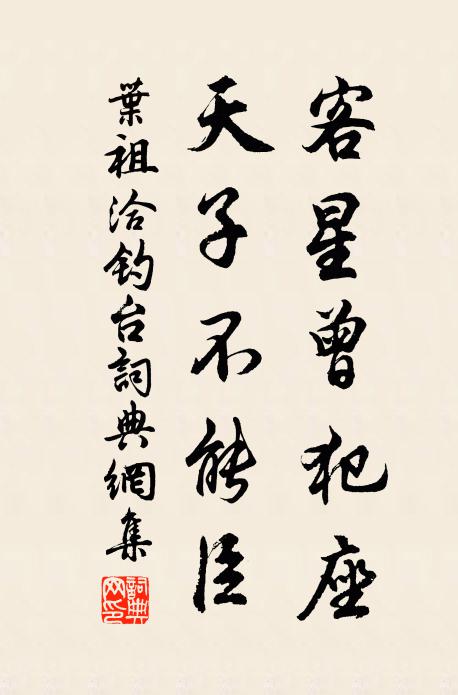 客星曾犯座
天子不能臣
葉祖洽釣台詞典網集
詞典網印